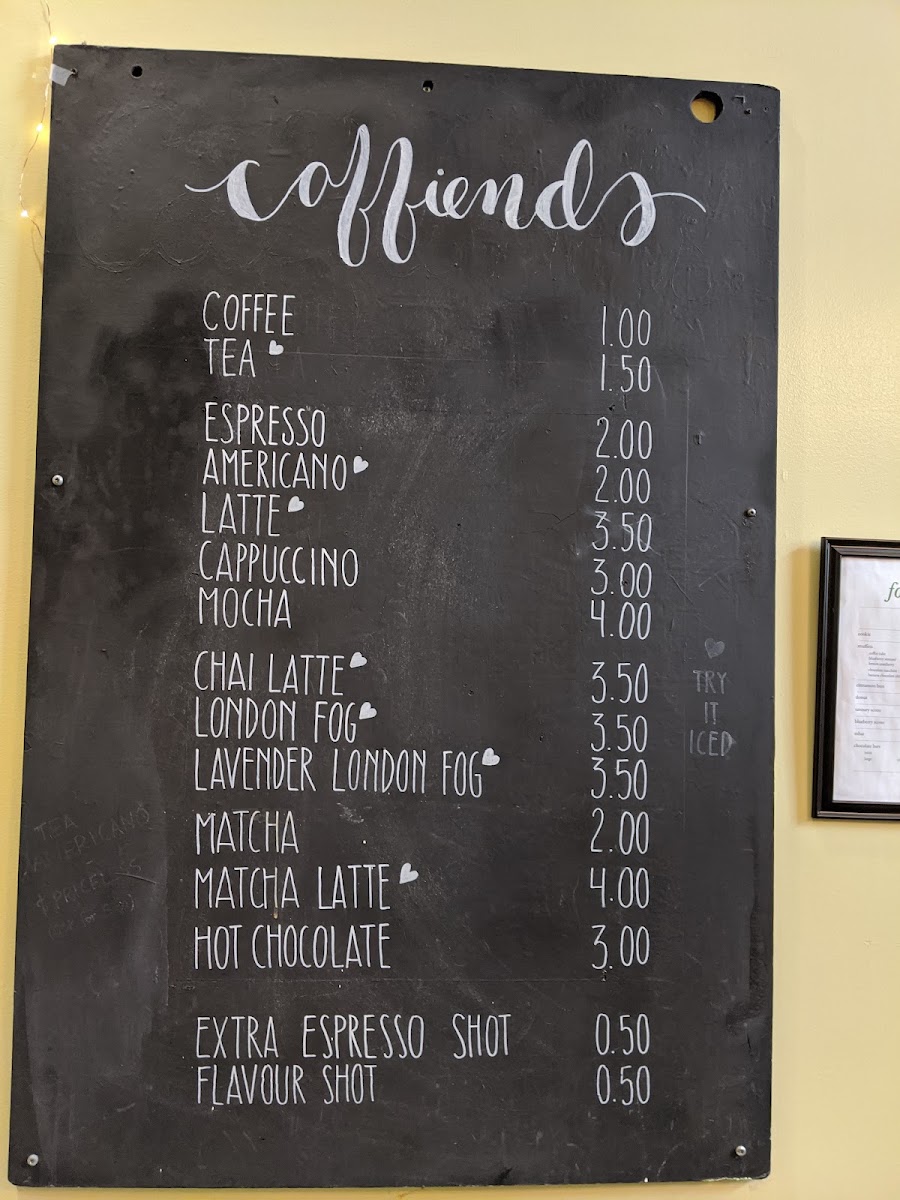 coffiends
COFFEE 1.00
TEA 1.50
ESPRESSO 2.00
AMERICANO 2.00
LATTE 3.50
CAPPUCCINO 3.00
MOCHA 4.00
CHAI LATTE 3.50
LONDON FOG 3.50
LAVENDER LONDON FOG 3.50
MATCHA 2.00
MATCHA LATTE 4.00
HOT CHOCOLATE 3.00
EXTRA ESPRESSO SHOT 0.50
FLAVOUR SHOT 0.50
TRY
IT
ICED
TEA
AMERICANO